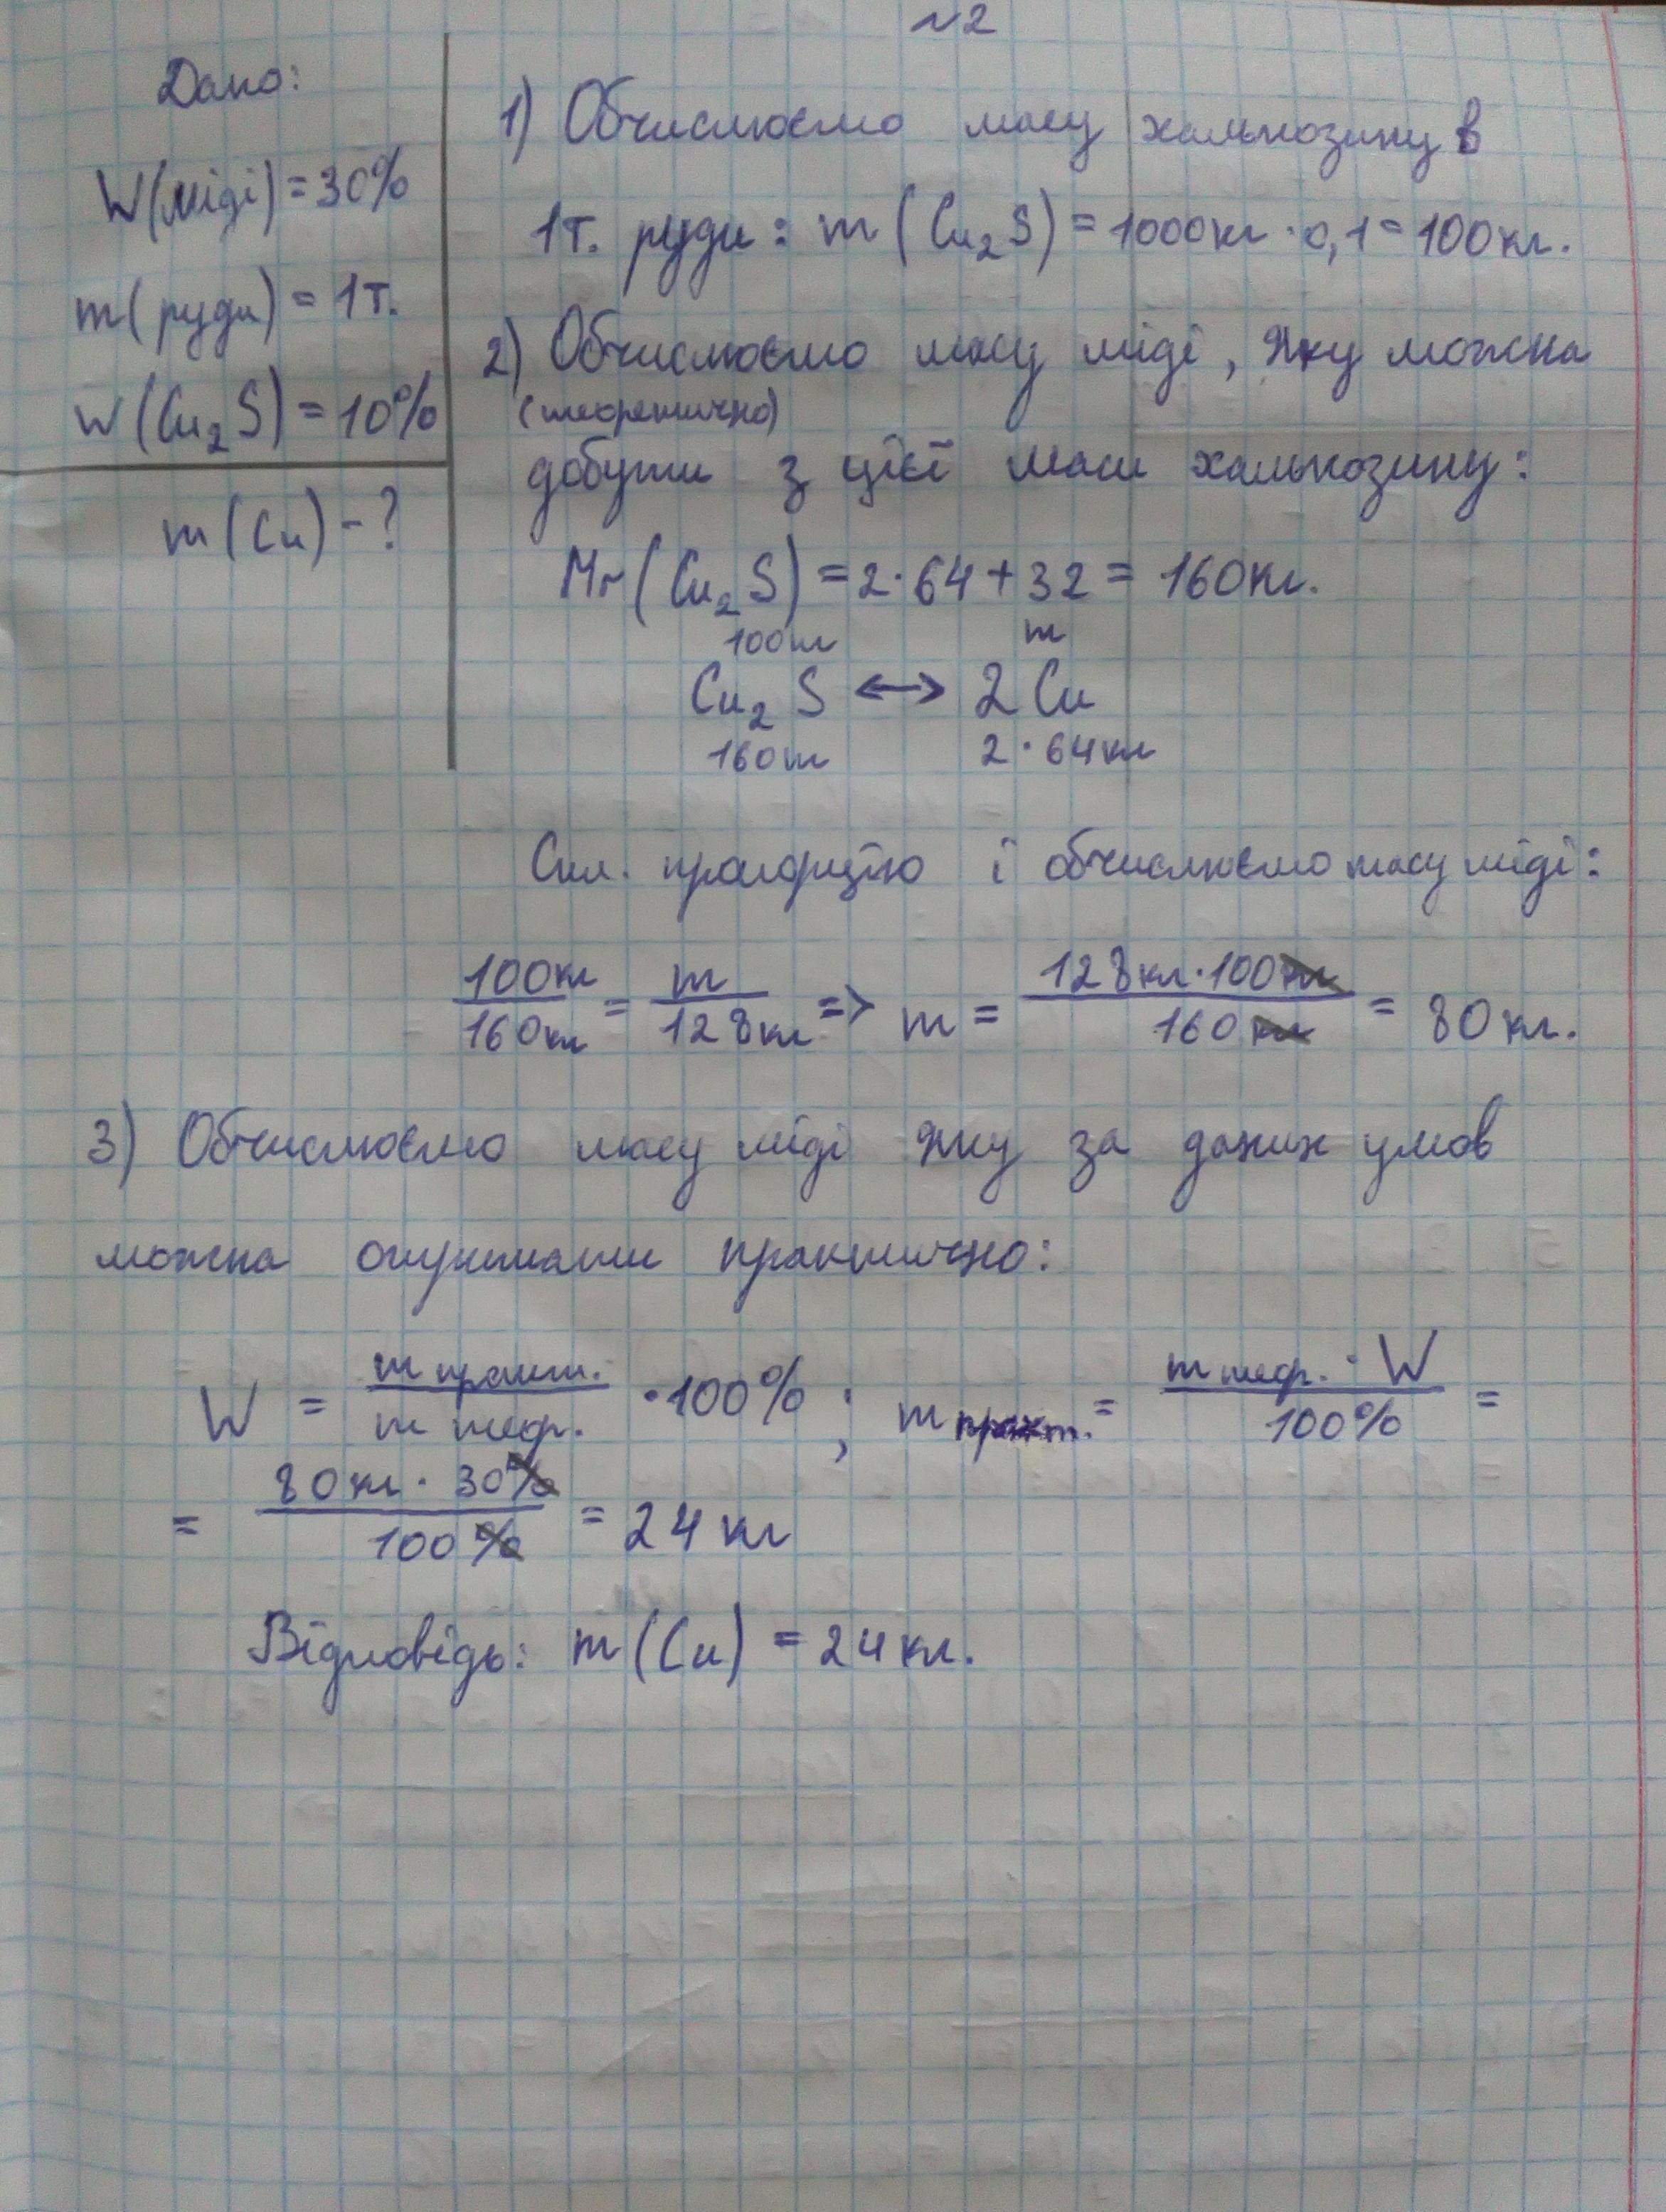 №2
Дано:
W(міді) = 30%
m(руди) = 1т.
W(Cu₂S) = 10%
m(Cu) - ?
1) Обчислюємо масу халькозину в
1т. руди: m(Cu₂S) = 1000кг · 0,1 = 100кг.
2) Обчислюємо масу міді, яку можна
(теоретично)
добути з цієї маси халькозину:
Mr(Cu₂S) = 2·64 + 32 = 160кг.
100т m
Cu₂S ↔ 2Cu
160т 2·64кг
Скл. пропорцію і обчислюємо масу міді:
100кг/160кг = m/128кг => m = 128кг·100кг/160кг = 80кг.
3) Обчислюємо масу міді яку за даних умов
можна отримати практично:
W = m практ./m теор. · 100% ; m практ. = m теор. · W/100% =
= 80кг · 30%/100% = 24кг
Відповідь: m(Cu) = 24кг.